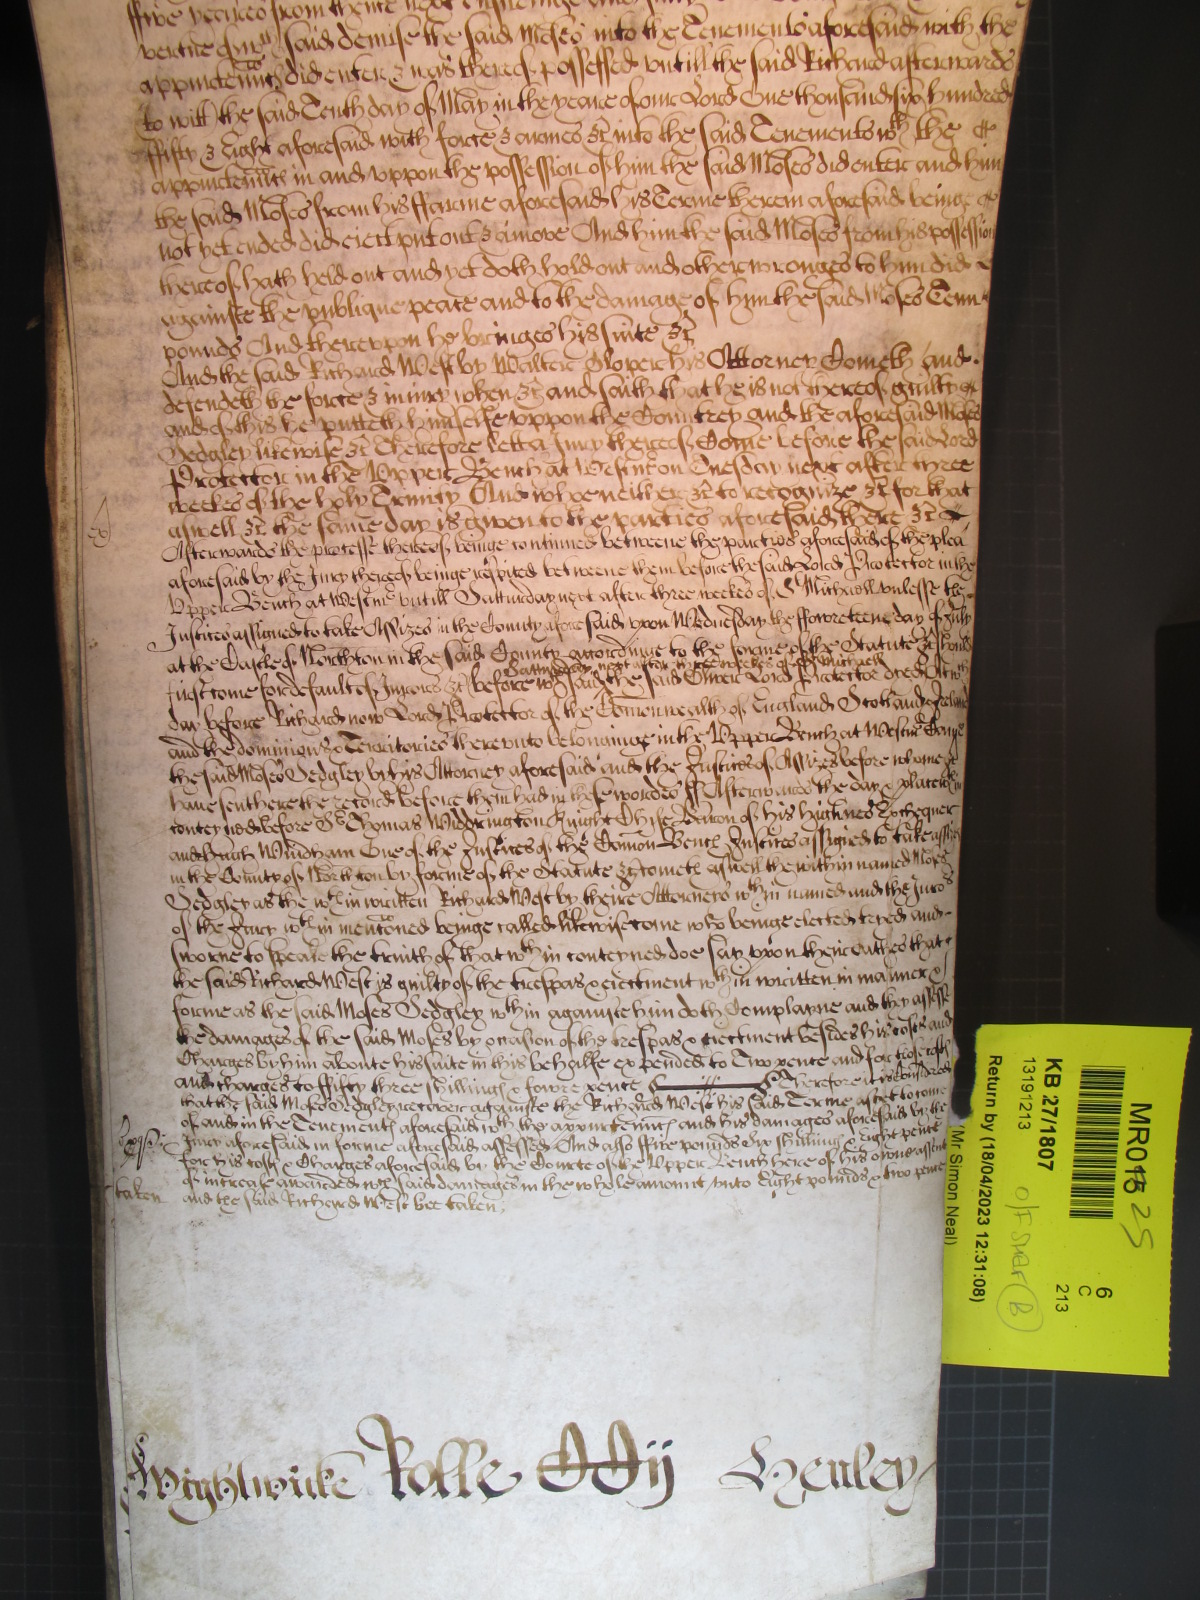 ffive yeares from thence next
vertue of wch said demise the said Moses into the Tenemente aforesaid with the
appurtennce did enter & was thereof possessed untill the said Richard afterwards
to witt the said Tenth day of May in the yeare of our Lord One thousand six hundred
ffifty & Eight aforesaid with force & armes &c into the said Tenements wth the
appurtennce in and uppon the possession of him the said Moses did enter and him
the said Moses from his ffarme aforesaid his Terme therein aforesaid beinge
not yet ended did eiect put out & amove And him the said Moses from his possession
thereof hath held out and yet doth hold out and other wronges to him did
againste the publique peace and to the damage of him the said Moses Tenn
pounds And thereuppon he bringes his suite &c
And the said Richard West by Walter Gloper his Attorney Cometh and
defendeth the force & iniury when &c and saith that he is not thereof guilty
and of this he putteth himselfe uppon the Countrey and the aforesaid Moses
Sedgley likewise &c Therefore lett a Jury thereof Come before the said Lord
Protector in the Upper Bench at Westmr on Tuesday next after three
weekes of the holy Trinity And who neither &c to recognize &c for that
aswell &c the same day is given to the parties aforesaid there &c
Afterwards the processe thereof beinge continued betweene the parties aforesaid of the plea
aforesaid by the Jury thereof beinge respited betweene them before the said Lord Protector in the
Upper Bench at Westmr untill Satturday next after three weekes of St Michaell unlesse the
Justices assigned to take Assizes in the County aforesaid uppon Wednesday the ffowreteene day of July
at the Castle of Northton in the said County accordinge to the forme of the Statute &c should
Satturday next after three weekes of St Michaell
first come for default of Jurors &c before wch said the said Oliver Lord Protector dyed At wch
day before Richard now Lord Protector of the Comonwealth of England Scotland & Ireland
and the dominions & Territories thereunto belonginge in the Upper Bench at Westmr Came
the said Moses Sedgley by his Attorney aforesaid and the Justices of Assizes before whome &c
have sent here the record before them had in these wordes ss Afterwards the day & place wthin
conteyned before Sr Thomas Widdrington Knight Chiefe Baron of his Highnes Exchequer
and Hugh Windham One of the Justices of the Comon Bench Justices assigned to take assizes
in the County of Northton by forme of the Statute &c cometh aswell the within named Moses
Sedgley as the wthin written Richard West by theire Attorneys wthin named and the Jurors
of the Jury wthin menconed beinge called likewise come who beinge elected tryed and
sworne to speake the truith of that wthin conteyned doe say upon their oathes that
the said Richard West is guilty of the trespas & eiectment wthin written in manner &
forme as the said Moses Sedgley wthin againste him doth Complayne and they assesse
the damages of the said Moses by occasion of the trespas & eiectment besides his costs and
Charges by him aboute his suite in this behalfe expended to Two pence and for those costs
and charges to ffifty three shillings & fowre pence Therefore it is considered
that the said Moses Sedgley recover againste the Richard West his said Terme as yet to come
of and in the Tenements aforesaid wth the appurtennce and his damages aforesaid by the
Jury aforesaid in forme aforesaid assessed And also ffive pounds six shillings & Eight pence
for his costs & Charges aforesaid by the Courte of the Upper Bench here of his owne assent
of increase awarded wch said damages in the whole amount unto Eight pounds & two pence
and the said Richard West bee taken
taken
Wightwicke Rolle OOij Henley
MR01625
6
C
213
KB 27/1807
13191213
O/F Shelf (B)
Return by (18/04/2023 12:31:08)
(Mr. Simon Neal)